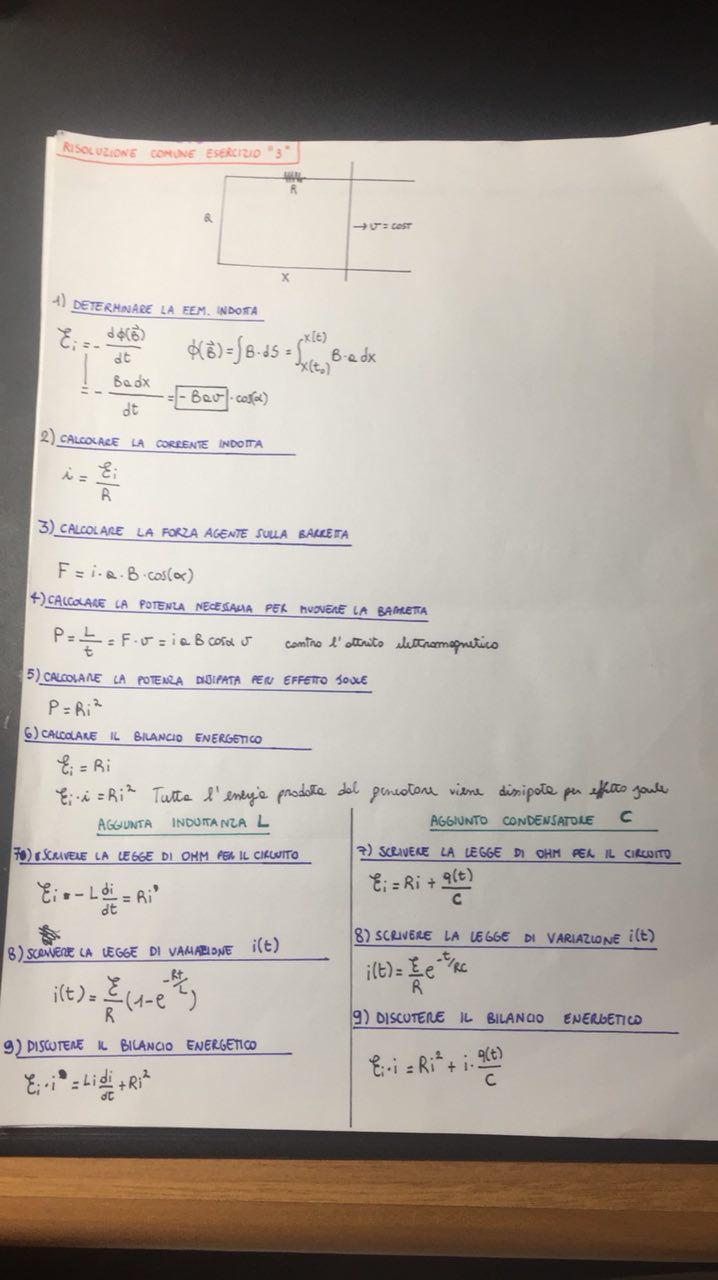 RISOLUZIONE COMUNE ESERCIZIO "3"
R
a
→ v = COST
X
1) DETERMINARE LA F.E.M. INDOTTA
ℰi = - dϕ(B⃗)/dt    ϕ(B⃗) = ∫B·dS = ∫_{x(t₀)}^{x(t)} B·a dx
= - Ba dx/dt = - Bav · cos(α)
2) CALCOLARE LA CORRENTE INDOTTA
i = ℰi/R
3) CALCOLARE LA FORZA AGENTE SULLA BARRETTA
F = i·a·B·cos(α)
4) CALCOLARE LA POTENZA NECESSARIA PER MUOVERE LA BARRETTA
P = L/t = F·v = i a B cosα v    contro l'attrito elettromagnetico
5) CALCOLARE LA POTENZA DISSIPATA PER EFFETTO JOULE
P = Ri²
6) CALCOLARE IL BILANCIO ENERGETICO
ℰi = Ri
ℰi·i = Ri² Tutta l'energia prodotta dal generatore viene dissipata per effetto joule
AGGIUNTA INDUTTANZA L
7) SCRIVERE LA LEGGE DI OHM PER IL CIRCUITO
ℰi - L di/dt = Ri
8) SCRIVERE LA LEGGE DI VARIAZIONE i(t)
i(t) = ℰ/R (1-e^{-Rt/L})
9) DISCUTERE IL BILANCIO ENERGETICO
ℰi·i = Li di/dt + Ri²
AGGIUNTO CONDENSATORE C
7) SCRIVERE LA LEGGE DI OHM PER IL CIRCUITO
ℰi = Ri + q(t)/C
8) SCRIVERE LA LEGGE DI VARIAZIONE i(t)
i(t) = ℰ/R e^{-t/RC}
9) DISCUTERE IL BILANCIO ENERGETICO
ℰi·i = Ri² + i·q(t)/C